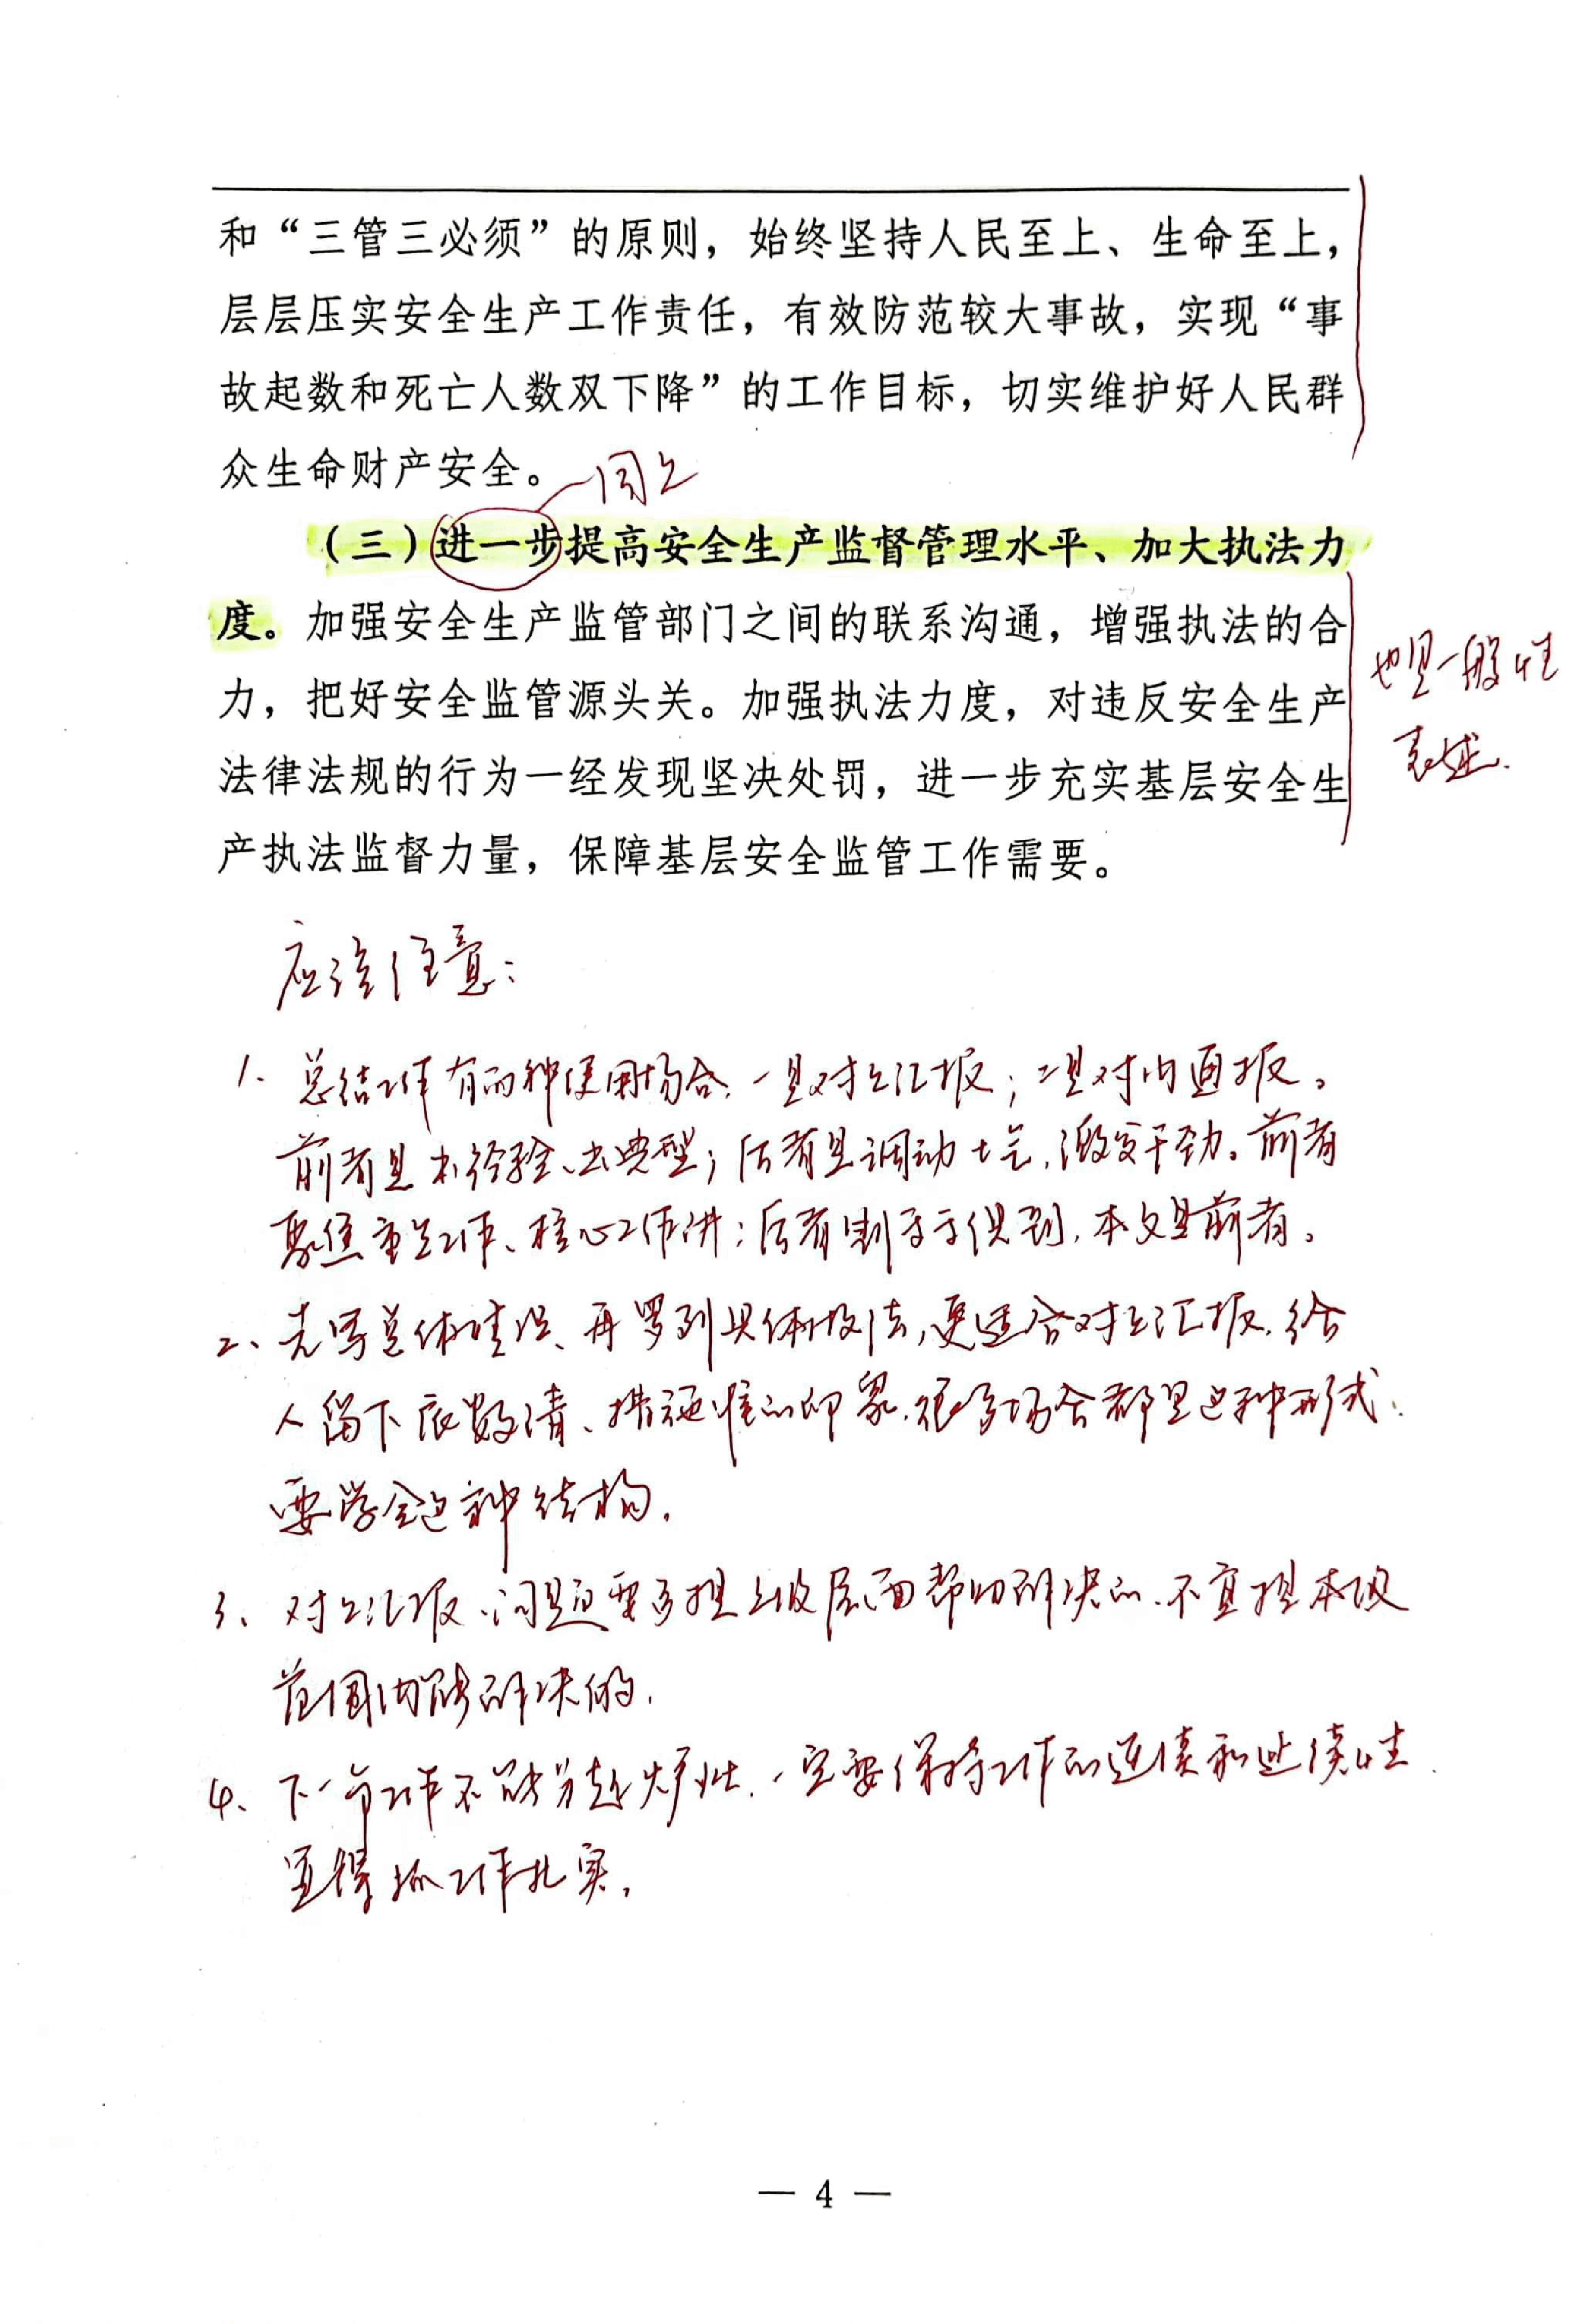 和“三管三必须”的原则，始终坚持人民至上、生命至上，
层层压实安全生产工作责任，有效防范较大事故，实现“事
故起数和死亡人数双下降”的工作目标，切实维护好人民群
众生命财产安全。
同上
（三）进一步提高安全生产监督管理水平、加大执法力
度。加强安全生产监管部门之间的联系沟通，增强执法的合
力，把好安全监管源头关。加强执法力度，对违反安全生产
法律法规的行为一经发现坚决处罚，进一步充实基层安全生
产执法监督力量，保障基层安全监管工作需要。
也是一般性
表述.
应该注意：
1. 总结工作有两种使用场合，一是对上汇报；二是对内通报。
前者是出经验、出典型；后者是调动士气，激发干劲。前者
聚焦重点工作、核心工作讲；后者则面面俱到，本文是前者。
2、先写总体情况、再罗列具体做法，更适合对上汇报，给
人留下底数清、措施准的印象，很多场合都是这种形式.
要学会这种结构.
3、对上汇报、问题要多提上级层面帮助解决的、不宜提本级
范围内能解决的.
4、下一步工作不能另起炉灶.一定要保持工作的连续和延续性.
显得抓工作扎实.
— 4 —